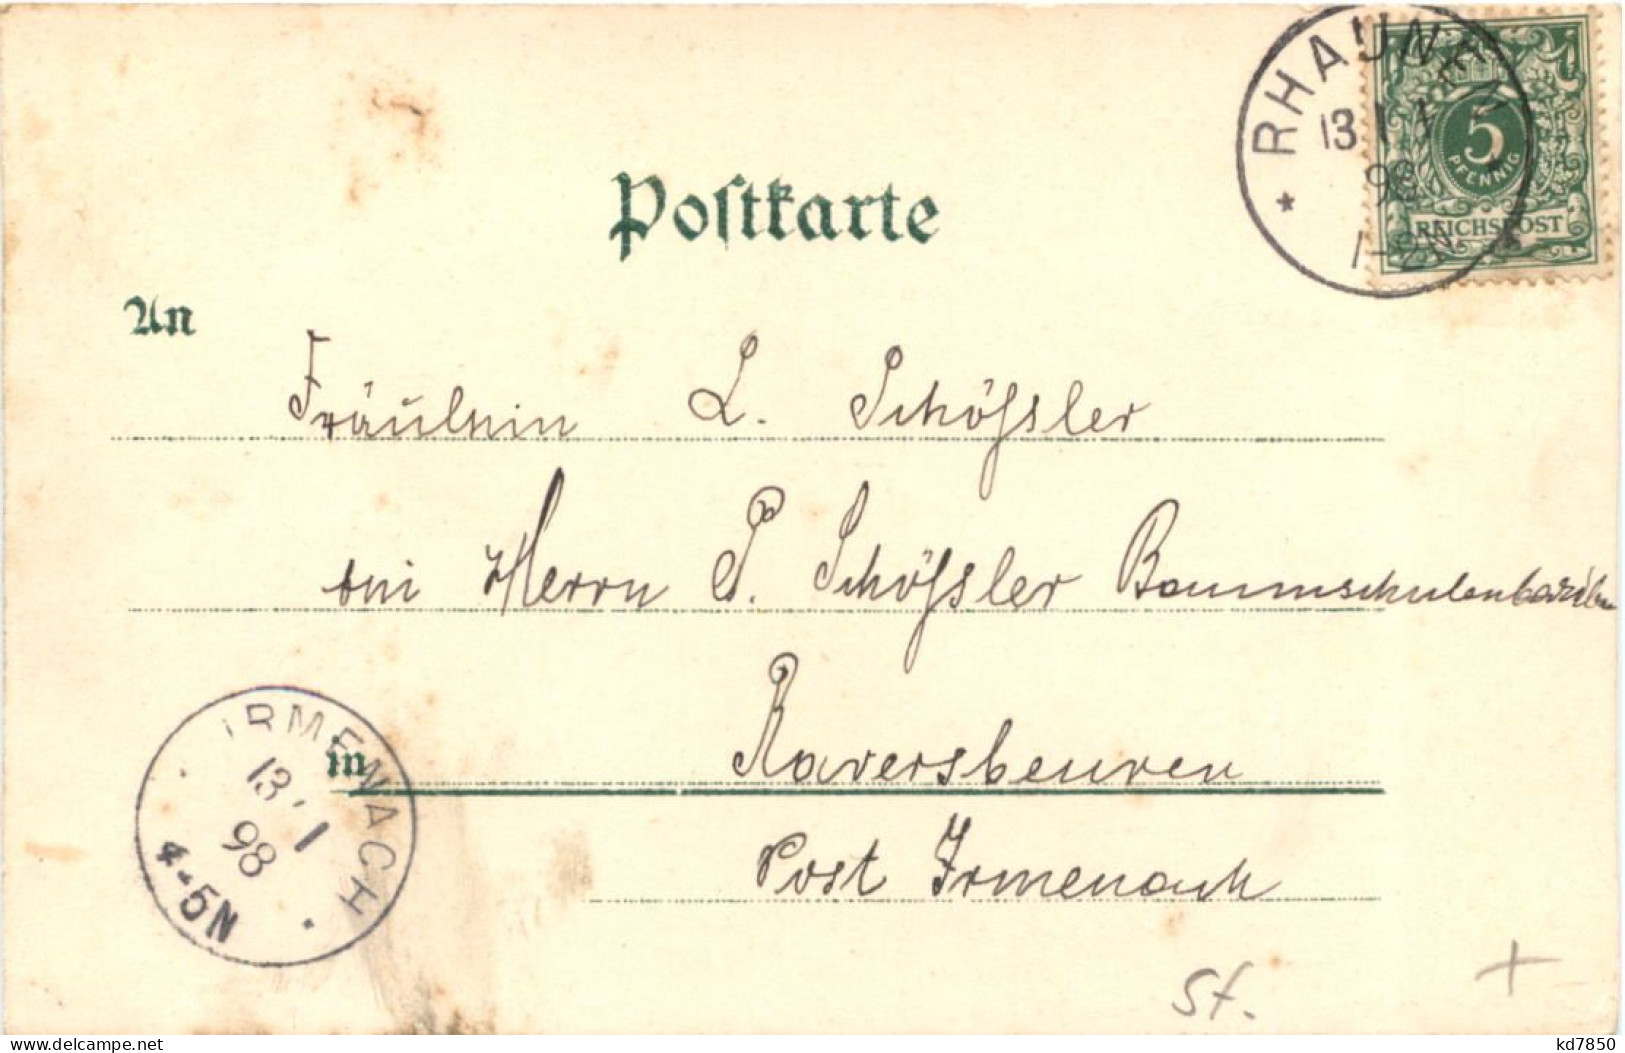 RHAUNEN
13 1
98
1-2N
5
PFENNIG
REICHSPOST
Postkarte
An
Fräulein L. Schößler
bei Herrn P. Schößler Baumschulenbesitzer
in Raversbeuren
Post Irmenach
IRMENACH
13 1
98
4-5N
St.
www.delcampe.net
kd7850